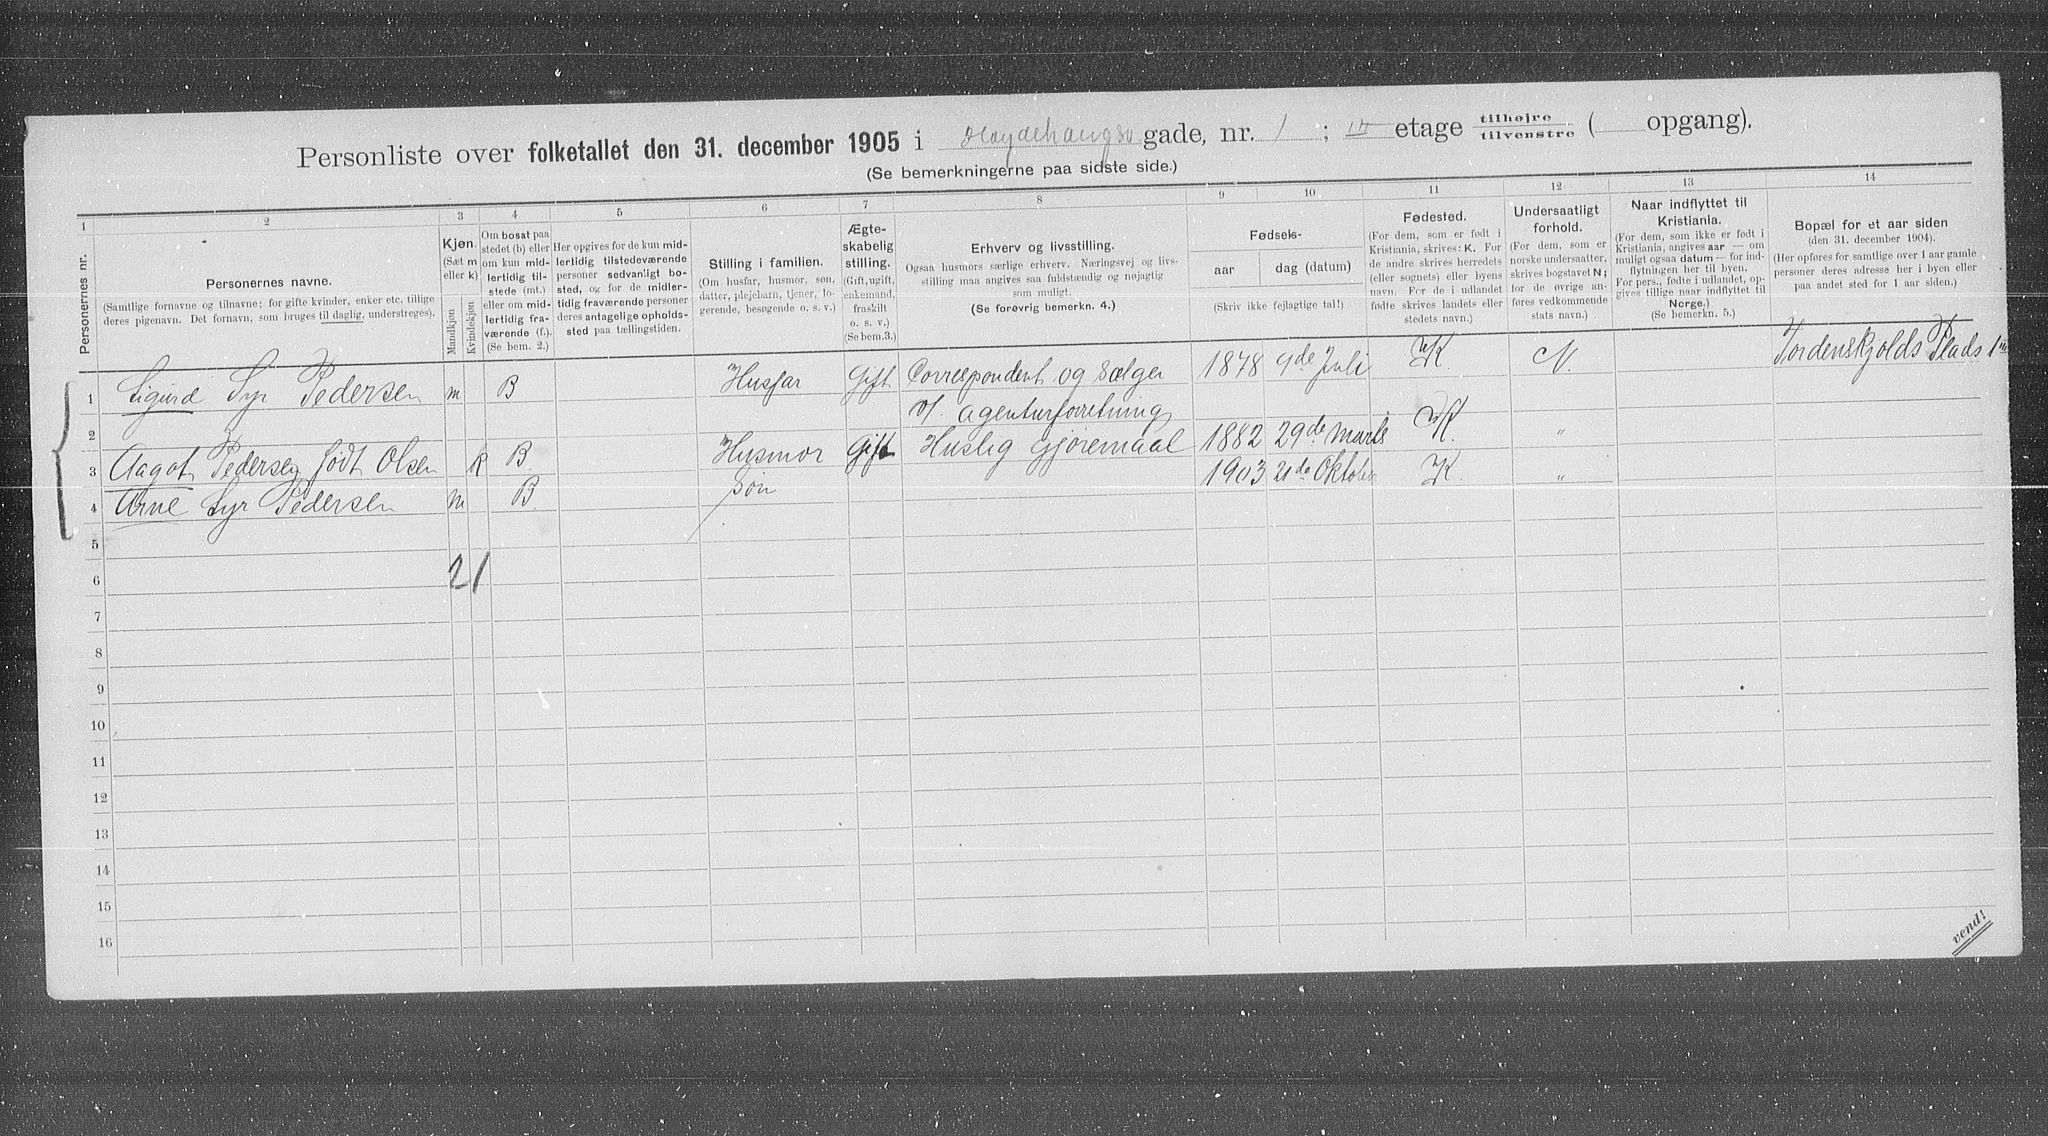 Personliste over folketallet den 31. december 1905 i Haydehaugsv gade, nr. 1 ; III etage tilhøjre tilvenstre ( opgang).
(Se bemerkningerne paa sidste side.)
1 2 3 4 5 6 7 8 9 10 11 12 13 14
Personernes nr.
Personernes navne.
(Samtlige fornavne og tilnavne; for gifte kvinder, enker etc. tillige
deres pigenavn. Det fornavn, som bruges til daglig, understreges).
Kjøn.
(Sæt m
eller k)
Mandkjøn
Kvindekjøn
Om bosat paa
stedet (b) eller
om kun mid-
lertidig til-
stede (mt.)
eller om mid-
lertidig fra-
værende (f.).
(Se bem. 2.)
Her opgives for de kun mid-
lertidig tilstedeværende
personer sedvanlig bo-
sted, og for de midler-
tidig fraværende personer
deres antagelige opholds-
sted paa tællingstiden.
Stilling i familien.
(Om husfar, husmor, søn,
datter, plejebarn, tjener, lo-
gerende, besøgende o. s. v.)
Ægte-
skabelig
stilling.
(Gift, ugift,
enkemand,
fraskilt
o. s. v.)
(Se bem.3.)
Erhverv og livsstilling.
Ogsaa husmors særlige erhverv. Næringsvej og livs-
stilling maa angives saa fuldstændig og nøjagtig
som muligt.
(Se forøvrig bemerkn. 4.)
Fødsels-
aar
dag (datum)
(Skriv ikke fejlagtige tal!)
Fødested.
(For dem, som er født i
Kristiania, skrives: K. For
de andre skrives herredets
(eller sognets) eller byens
navn. For de i udlandet
fødte skrives landets eller
stedets navn.)
Undersaatligt
forhold.
(For dem, som er
norske undersaatter,
skrives bogstavet N;
for de øvrige an-
føres vedkommende
stats navn.)
Naar indflyttet til
Kristiania.
(For dem, som ikke er født i
Kristiania, angives aar — om
muligt ogsaa datum — for ind-
flytningen her til byen.
For pers., fødte i udlandet, op-
gives tillige naar indflyttet til
Norge.)
(Se bemerkn. 5.)
Bopæl for et aar siden
(den 31. december 1904).
(Her opføres for samtlige over 1 aar gamle
personer deres adresse her i byen eller
paa andet sted for 1 aar siden.)
1 Sigurd Syr Pedersen m B Husfar Gift Correspondent og Sælger 1878 9de Juli K. N. Tordenskjolds Plads 1
2 v/ Agenturforretning
3 Aagot Pedersen født Olsen k B Husmor Gift Huslig Gjøremaal 1882 29de Marts K. "
4 Arne Syr Pedersen m B. Søn 1903 21de Oktober K. "
5
6 2 1
7
8
9
10
11
12
13
14
15
16
vend!